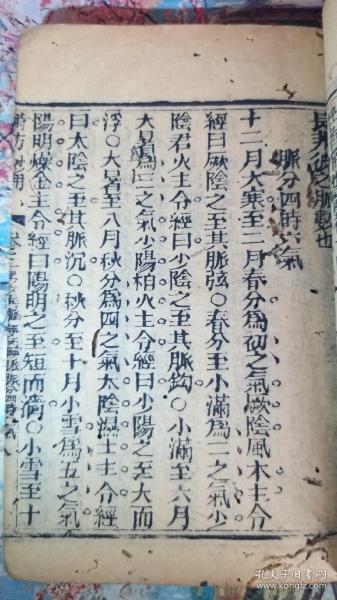 之脈數也
脈分四時六氣
十二月大寒至二月春分為初之氣厥陰風木主令
經曰厥陰之至其脈弦〇春分至小滿為二之氣少
陰君火主令經曰少陰之至其脈鈎〇小滿至六月
大暑為三之氣少陽相火主令經曰少陽之至大而
浮〇大暑至八月秋分為四之氣太陰濕土主令經
曰太陰之至其脈沉〇秋分至十月小雪為五之氣
陽明燥金主令經曰陽明之至短而濇〇小雪至十
孔夫子旧书网